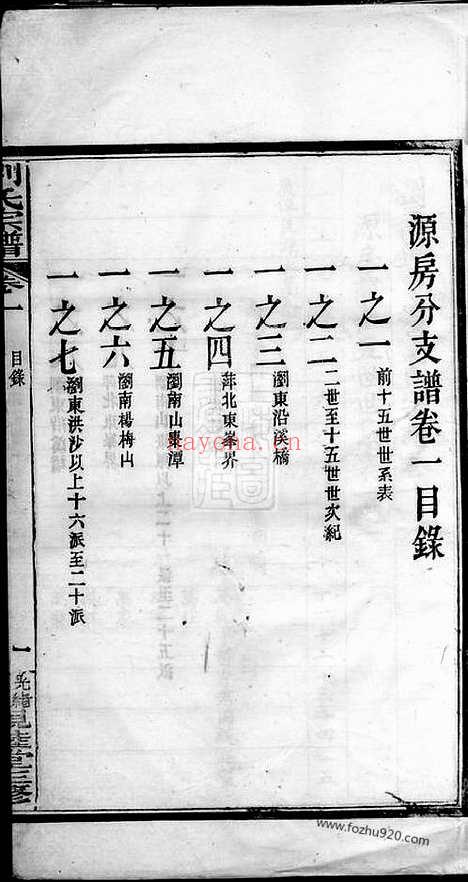 源房分支譜卷一目錄
一之一 前十五世世系表
一之二 二世至十五世世次紀
一之三 瀏東沿溪橋
一之四 萍北東峯界
一之五 瀏南山棗潭
一之六 瀏南楊梅山
一之七 瀏東洪沙以上十六派至二十派
劉氏宗譜
卷一
目錄
一
光緒
堂三修
kayona.cn
www.fozhu920.com